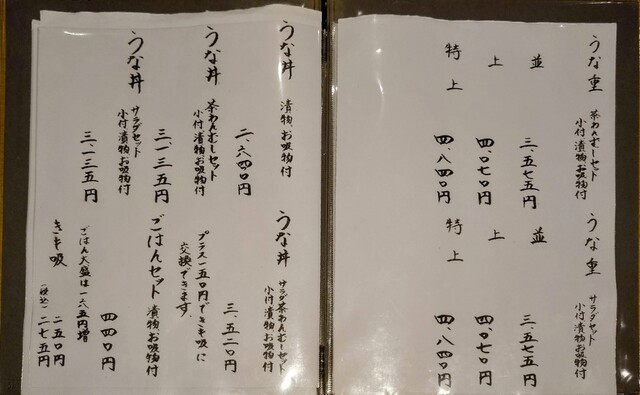 うな重 茶わんむしセット
小付 漬物 お吸物付
並 三、五七五円
上 四、〇七〇円
特上 四、八四〇円
うな重 サラダセット
小付 漬物 お吸物付
並 三、五七五円
上 四、〇七〇円
特上 四、八四〇円
うな丼 漬物 お吸物付
二、六四〇円
うな丼 茶わんむしセット
小付 漬物 お吸物付
三、一三五円
うな丼 サラダセット
小付 漬物 お吸物付
三、一三五円
うな丼 サラダ茶わんむしセット
小付 漬物 お吸物付
三、五二〇円
プラス一五〇円できも吸に
交換できます。
ごはんセット 漬物 お吸物付
四四〇円
ごはん大盛は一六五円増
きも吸 二五〇円
(税込) 二七五円